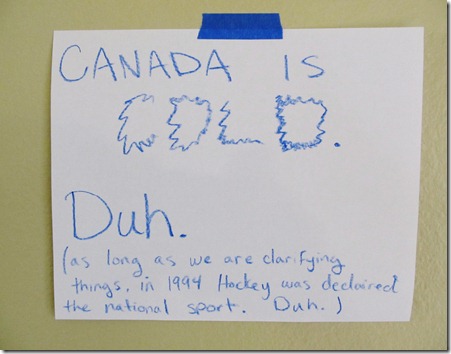 CANADA IS
COLD.
Duh.
(as long as we are clarifying
things, in 1994 Hockey was declaired
the national sport. Duh.)